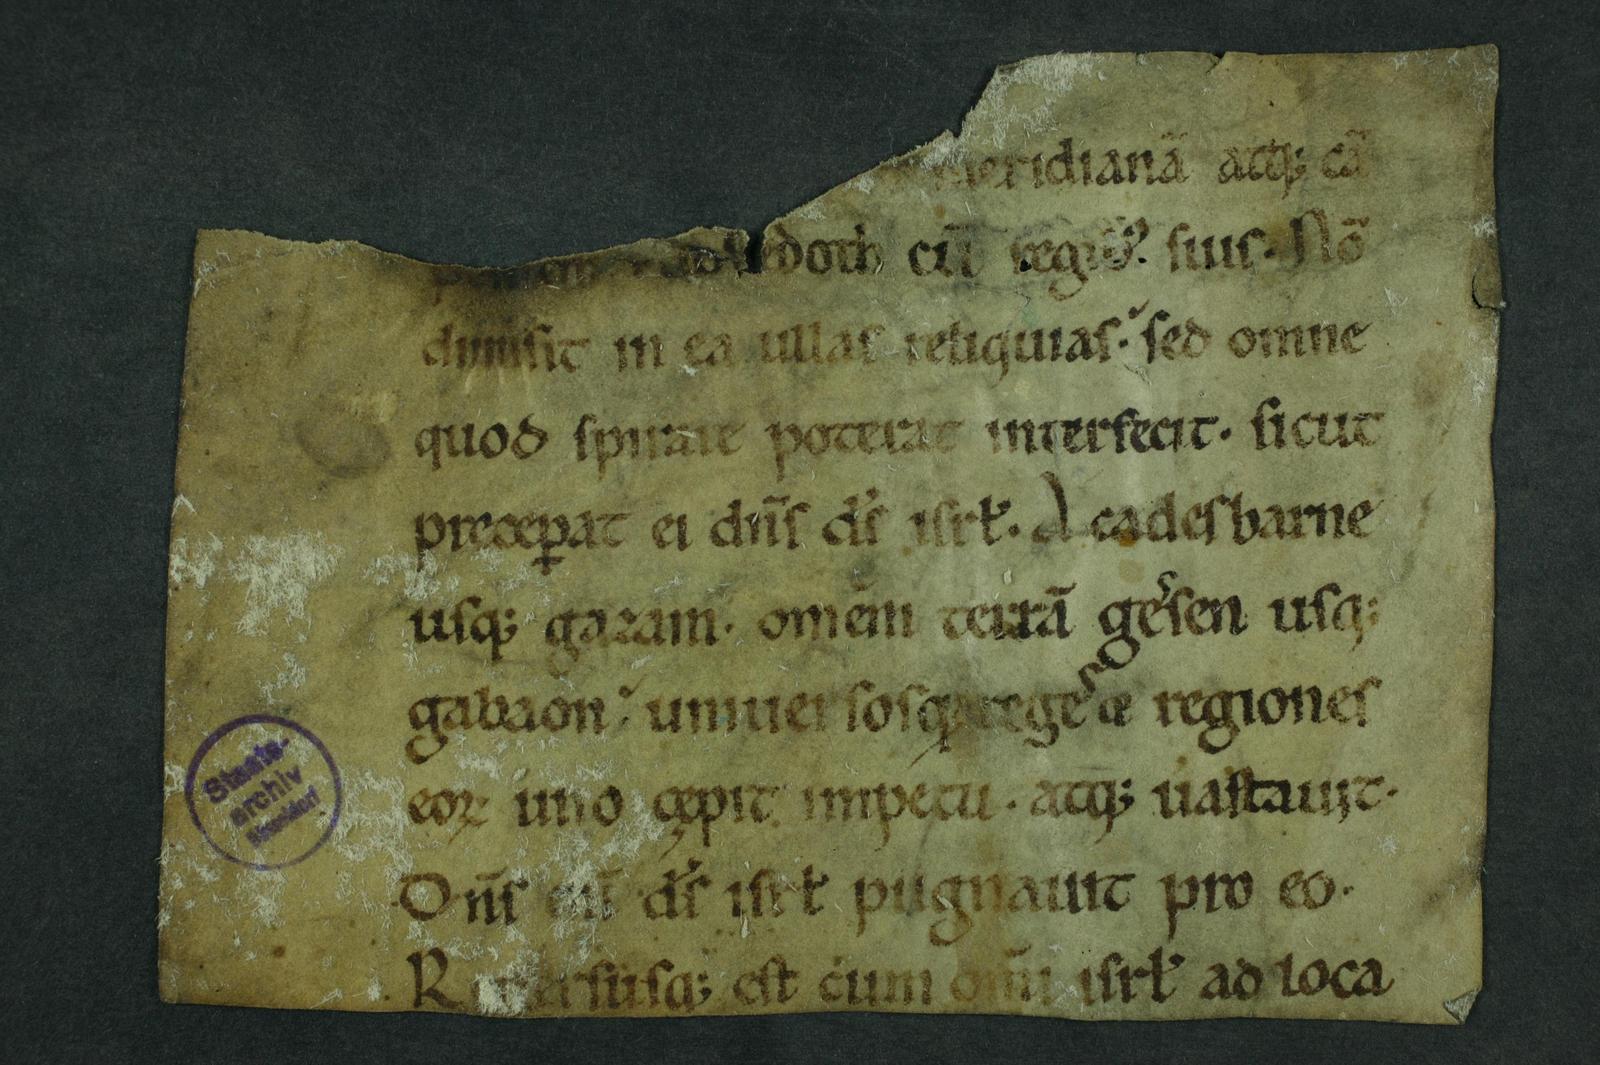 meridianā atq; cā
doth cū regib; suis. Nō
dimisit in ea ullas reliquias. sed omne
quod spirare poterat interfecit. sicut
preceꝑat ei dn̄s ds̄ isrł. A cadesbarne
usq; gazam. omēm terrā gessen usq;
gabaon. uniuersosq; reges & regiones
eoꝝ uno cępit impetu. atq; uastauit.
Dn̄s eni ds̄ isrł pugnauit pro eo.
Reuersusq; est cum om̄i isrł ad loca
Staats-
archiv